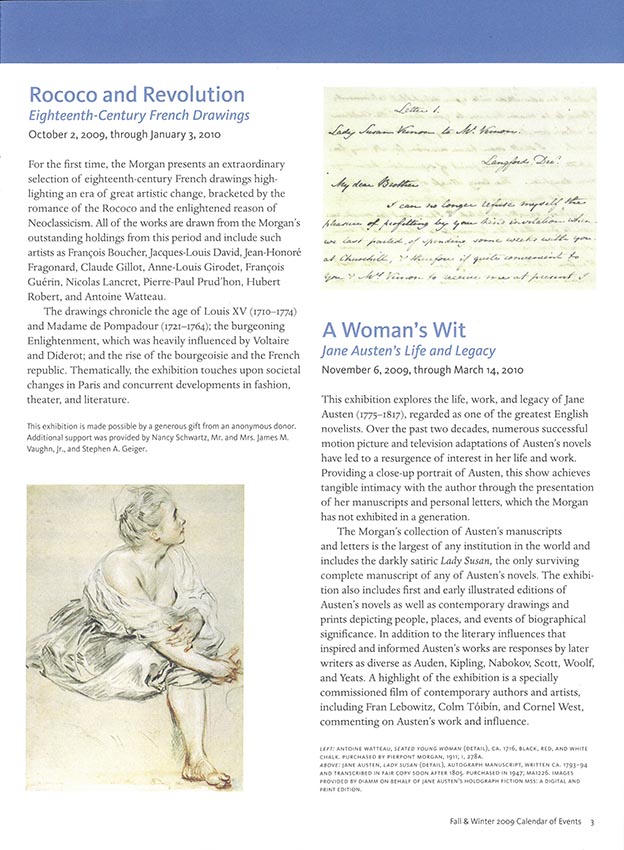 Rococo and Revolution
Eighteenth-Century French Drawings
October 2, 2009, through January 3, 2010
For the first time, the Morgan presents an extraordinary
selection of eighteenth-century French drawings high-
lighting an era of great artistic change, bracketed by the
romance of the Rococo and the enlightened reason of
Neoclassicism. All of the works are drawn from the Morgan's
outstanding holdings from this period and include such
artists as François Boucher, Jacques-Louis David, Jean-Honoré
Fragonard, Claude Gillot, Anne-Louis Girodet, François
Guérin, Nicolas Lancret, Pierre-Paul Prud'hon, Hubert
Robert, and Antoine Watteau.
The drawings chronicle the age of Louis XV (1710–1774)
and Madame de Pompadour (1721–1764); the burgeoning
Enlightenment, which was heavily influenced by Voltaire
and Diderot; and the rise of the bourgeoisie and the French
republic. Thematically, the exhibition touches upon societal
changes in Paris and concurrent developments in fashion,
theater, and literature.
This exhibition is made possible by a generous gift from an anonymous donor.
Additional support was provided by Nancy Schwartz, Mr. and Mrs. James M.
Vaughn, Jr., and Stephen A. Geiger.
Letter 1.
Lady Susan Vernon to Mr. Vernon.
Langford Decr
My dear Brother
I can no longer refuse myself the
pleasure of profitting by your kind invitation when
we last parted of spending some weeks with you
at Churchill, & therefore if quite convenient to
you & Mrs Vernon to receive me at present I
A Woman's Wit
Jane Austen's Life and Legacy
November 6, 2009, through March 14, 2010
This exhibition explores the life, work, and legacy of Jane
Austen (1775–1817), regarded as one of the greatest English
novelists. Over the past two decades, numerous successful
motion picture and television adaptations of Austen's novels
have led to a resurgence of interest in her life and work.
Providing a close-up portrait of Austen, this show achieves
tangible intimacy with the author through the presentation
of her manuscripts and personal letters, which the Morgan
has not exhibited in a generation.
The Morgan's collection of Austen's manuscripts
and letters is the largest of any institution in the world and
includes the darkly satiric Lady Susan, the only surviving
complete manuscript of any of Austen's novels. The exhibi-
tion also includes first and early illustrated editions of
Austen's novels as well as contemporary drawings and
prints depicting people, places, and events of biographical
significance. In addition to the literary influences that
inspired and informed Austen's works are responses by later
writers as diverse as Auden, Kipling, Nabokov, Scott, Woolf,
and Yeats. A highlight of the exhibition is a specially
commissioned film of contemporary authors and artists,
including Fran Lebowitz, Colm Tóibín, and Cornel West,
commenting on Austen's work and influence.
LEFT: ANTOINE WATTEAU, SEATED YOUNG WOMAN (DETAIL), CA. 1716, BLACK, RED, AND WHITE
CHALK. PURCHASED BY PIERPONT MORGAN, 1911; I, 278A.
ABOVE: JANE AUSTEN, LADY SUSAN (DETAIL), AUTOGRAPH MANUSCRIPT, WRITTEN CA. 1793–94
AND TRANSCRIBED IN FAIR COPY SOON AFTER 1805. PURCHASED IN 1947; MA1226. IMAGES
PROVIDED BY DIAMM ON BEHALF OF JANE AUSTEN'S HOLOGRAPH FICTION MSS: A DIGITAL AND
PRINT EDITION.
Fall & Winter 2009 Calendar of Events 3